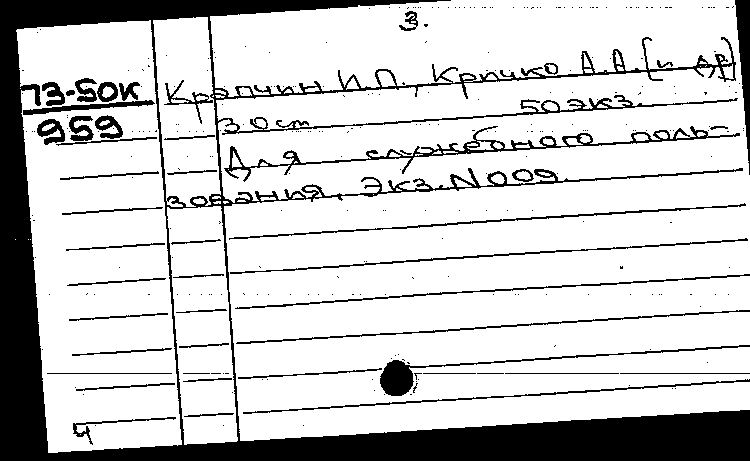 3.
73-50к
959
Крапчин И.П., Кричко А.А. [и др]
30см 50экз.
Для служебного поль-
зования, Экз.N009.
ч